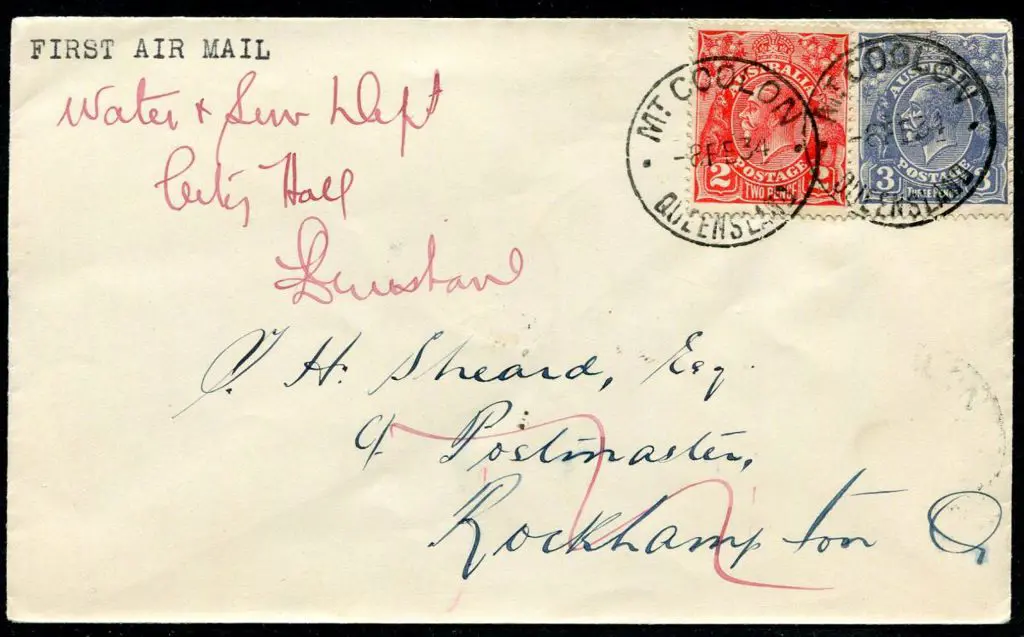 FIRST AIR MAIL
Water & Sew Dept
City Hall
MT COOLON
-8.FE.34
QUEENSLAND
AUSTRALIA
2 POSTAGE
TWO PENCE
MT COOLON
-8.FE.34
QUEENSLAND
AUSTRALIA
3 POSTAGE 3
H. Sheard, Esq.
c/- Postmaster,
Rockhampton Q